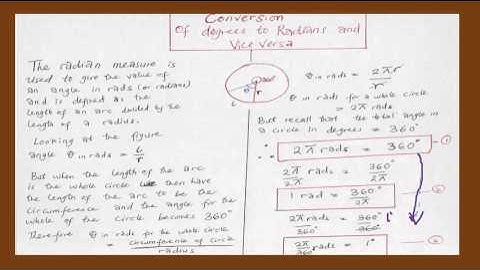 Conversion
Of degrees to Radians and
Vice Versa
The radian measure is
used to give the value of
an angle in rads (or radians)
and is defined as the
length of an arc divided by the
length of a radius.
Looking at the figure
angle θ in rads = L/r
But when the length of the arc
is the whole circle we then have
the length of the arc to be the
circumference and the angle for the
whole of the circle becomes 360°
Therefore θ in rads for the whole circle
= circumference of circle
radius
θ
r
L
θ in rads = 2πr/r
θ in rads for a whole circle
= 2π rads
But recall that the total angle in
a circle in degrees = 360°
∴ 2π rads = 360° ①
2π rads/2π = 360°/2π
1 rad = 360°/2π ②
2π rads/360° = 360°/360° 1°
2π rads/360° = 1° ③